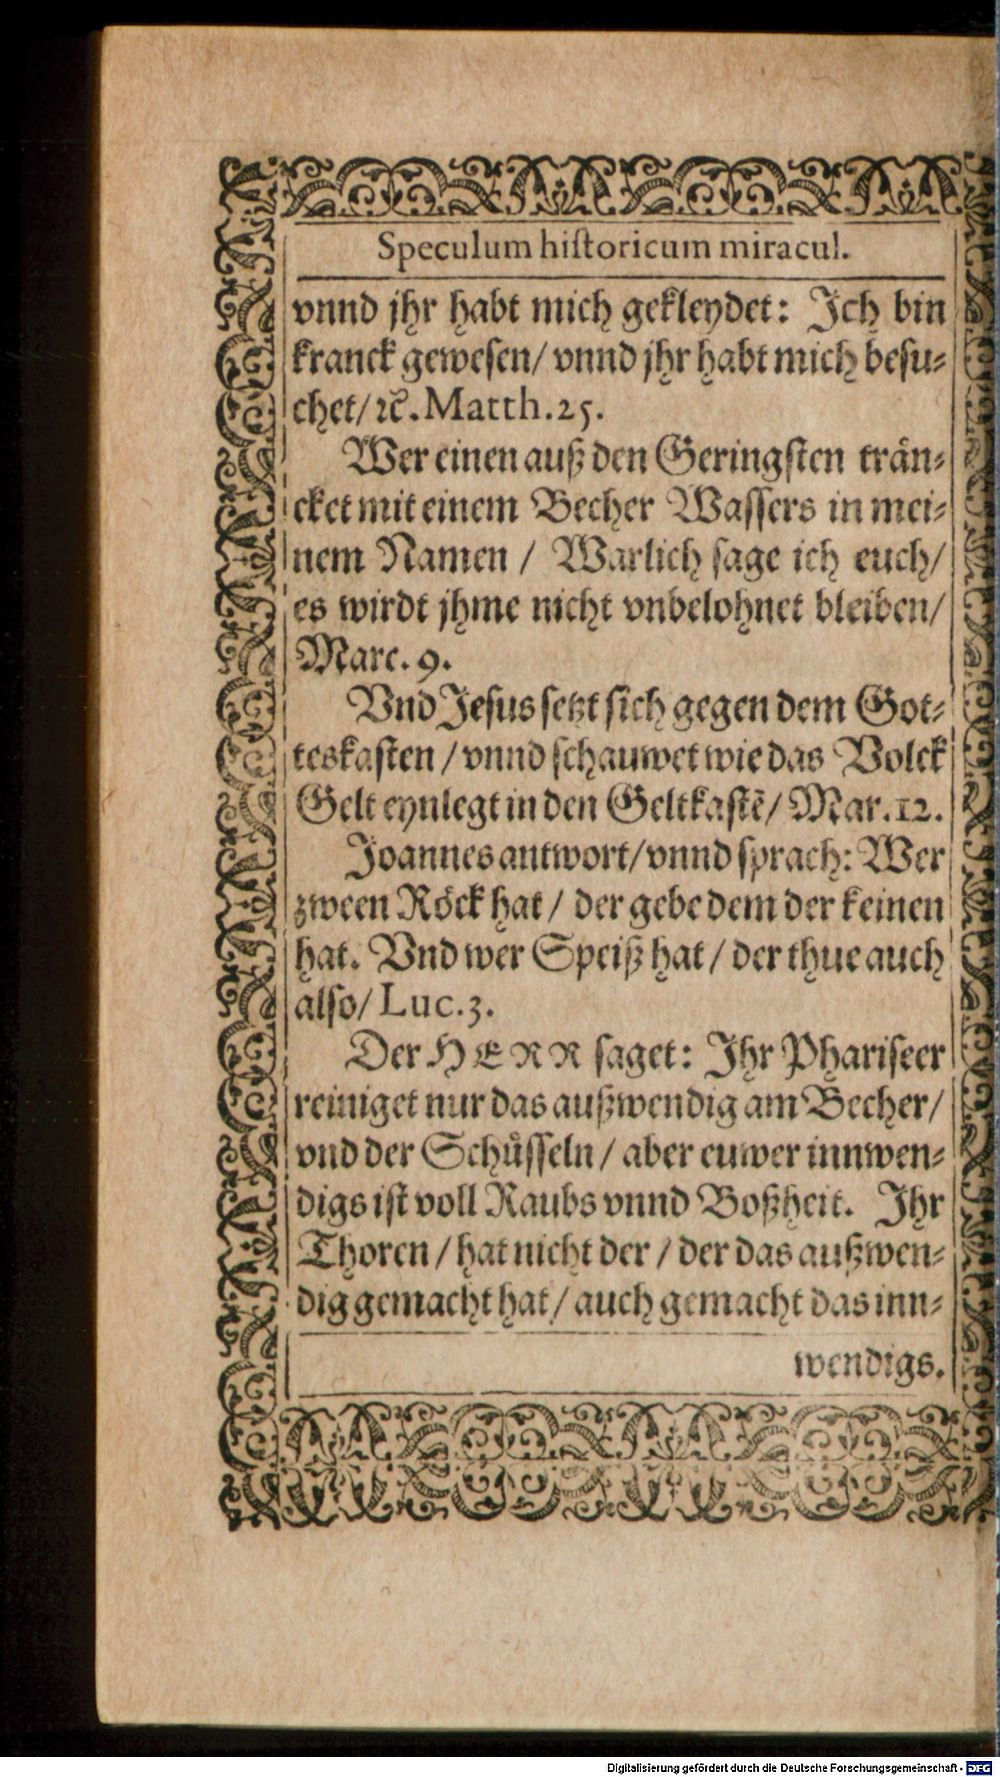 Speculum historicum miracul.
vnnd jhr habt mich gekleydet: Ich bin
kranck gewesen/ vnnd jhr habt mich besu⸗
chet/ ꝛc̃. Matth. 25.
Wer einen auß den Geringsten trän⸗
cket mit einem Becher Wassers in mei⸗
nem Namen / Warlich sage ich euch/
es wirdt jhme nicht vnbelohnet bleiben/
Marc. 9.
Vnd Jesus setzt sich gegen dem Got⸗
teskasten / vnnd schauwet wie das Volck
Gelt eynlegt in den Geltkastẽ/ Mar. 12.
Joannes antwort/ vnnd sprach: Wer
zween Röck hat / der gebe dem der keinen
hat. Vnd wer Speiß hat / der thue auch
also/ Luc. 3.
Der HERR saget: Ihr Phariseer
reiniget nur das außwendig am Becher/
vnd der Schuͤsseln / aber euwer innwen⸗
digs ist voll Raubs vnnd Boßheit. Ihr
Thoren / hat nicht der / der das außwen⸗
dig gemacht hat / auch gemacht das inn⸗
wendigs.
Digitalisierung gefördert durch die Deutsche Forschungsgemeinschaft - DFG